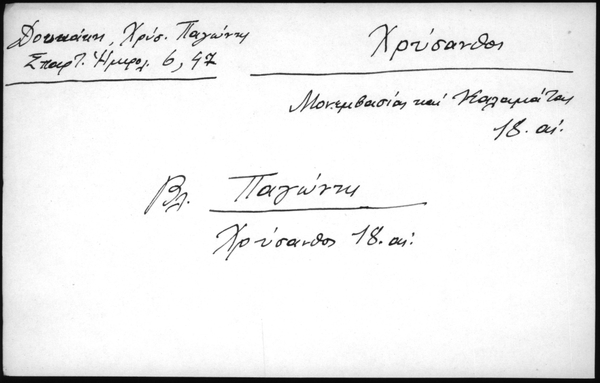 Δουκάκη, Χρύσ. Παγώνης
Σπαρτ. Ημερολ. 6, 47
Χρύσανθος
Μονεμβασίας καί Καλαμάτας
18. αἰ.
Βλ. Παγώνης
Χρύσανθος 18. αἰ.